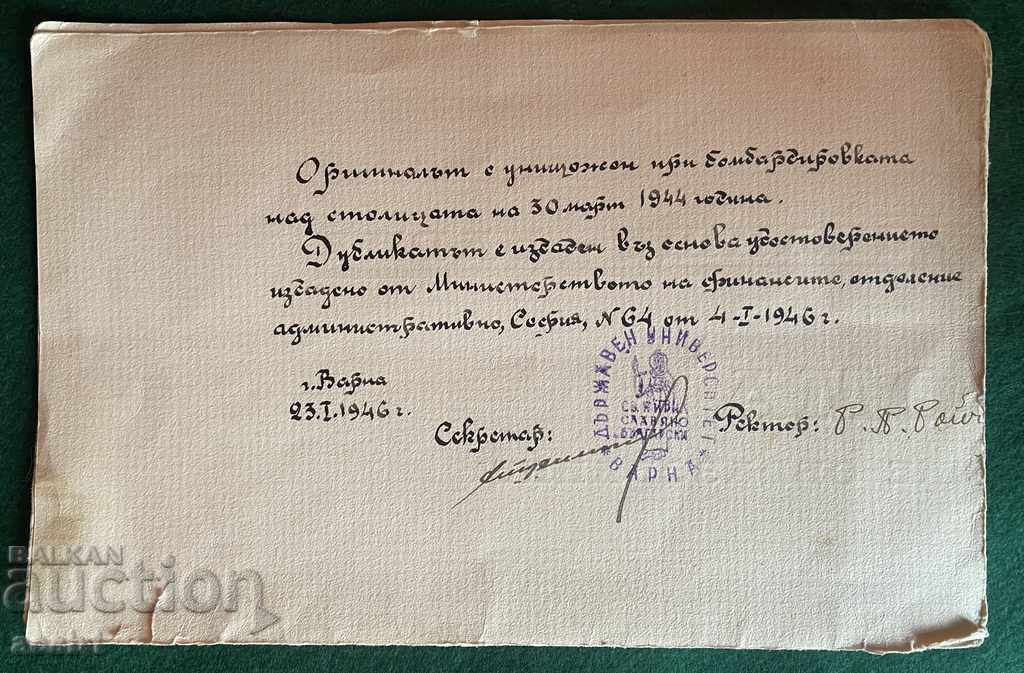 Оригиналът е унищожен при бомбардировката
над столицата на 30 март 1944 година.
Дубликатът е издаден въз основа удостоверението
издадено от Министерството на финансите, отделение
административно, София, N 64 от 4-I-1946 г.
г. Варна
23.I.1946 г.
Секретар:
Ректор:
ДЪРЖАВЕН УНИВЕРСИТЕТ
СВ. КИРИЛ
СЛАВЯНО
БЪЛГАРСКИ
* ВАРНА *
BALKAN
auction